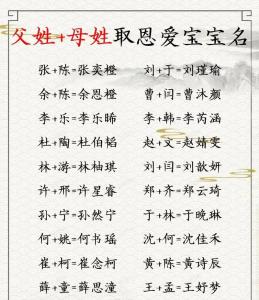 父姓+母姓取恩爱宝宝名
张+陈=张奕橙 刘+于=刘瑾瑜
余+陈=余恩橙 曹+闫=曹沐颜
李+乐=李乐晞 李+韩=李芮涵
杜+陶=杜伯韬 赵+文=赵婧雯
林+游=林柚琪 刘+闫=刘歆妍
许+邢=许星睿 郑+齐=郑云琦
孙+宁=孙然宁 于+林=于晚琳
何+姚=何书瑶 沈+何=沈佳禾
崔+柯=崔念柯 黄+陈=黄诗辰
薛+童=薛思潼 王+孟=王妤梦